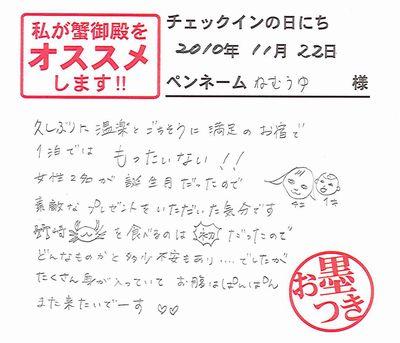 私が蟹御殿を
オススメ
します!!
チェックインの日にち
2010年 11月 22日
ペンネーム ねむうゆ 様
久しぶりに 温楽とごちそうに 満足のお宿で
1泊では もったいない!!
女性2名が 誕生月だったので
素敵な プレゼントをいただいた気分です
を食べるのは 初 だったので
どんなものかと多少不安もあり....でしたが
たくさん身が入っていて お腹はぱんぱん
また来たいでーす ♡♡
お墨つき